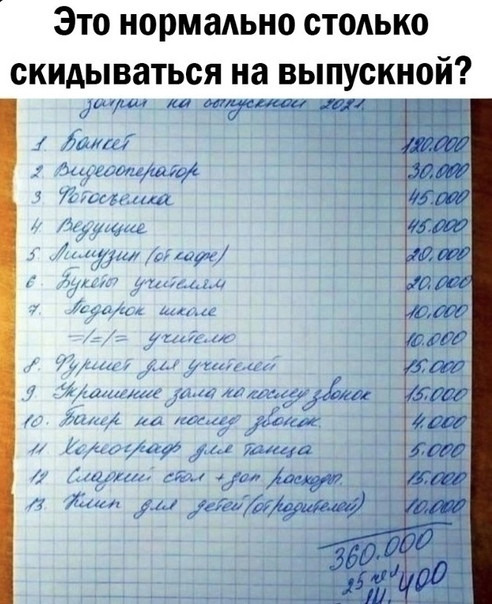 Это нормально столько
скидываться на выпускной?
затрат на выпускной 2021.
1 Банкет 120.000
2 Видеооператор 30.000
3 Фотосъемка 45.000
4. Ведущие 45.000
5. Лимузин (от кафе) 20.000
6. Букеты учителям 20.000
7. Подарок школе 10.000
=/=/= учителю 10.000
8. Фуршет для учителей 15.000
9. Украшение зала на послед звонок 15.000
10. Банер на послед звонок 4.000
11. Хореограф для танца 5.000
12 Сладкий стол + доп расходы. 15.000
13. Клип для детей (от родителей) 10.000
360.000
25 чел
14.400